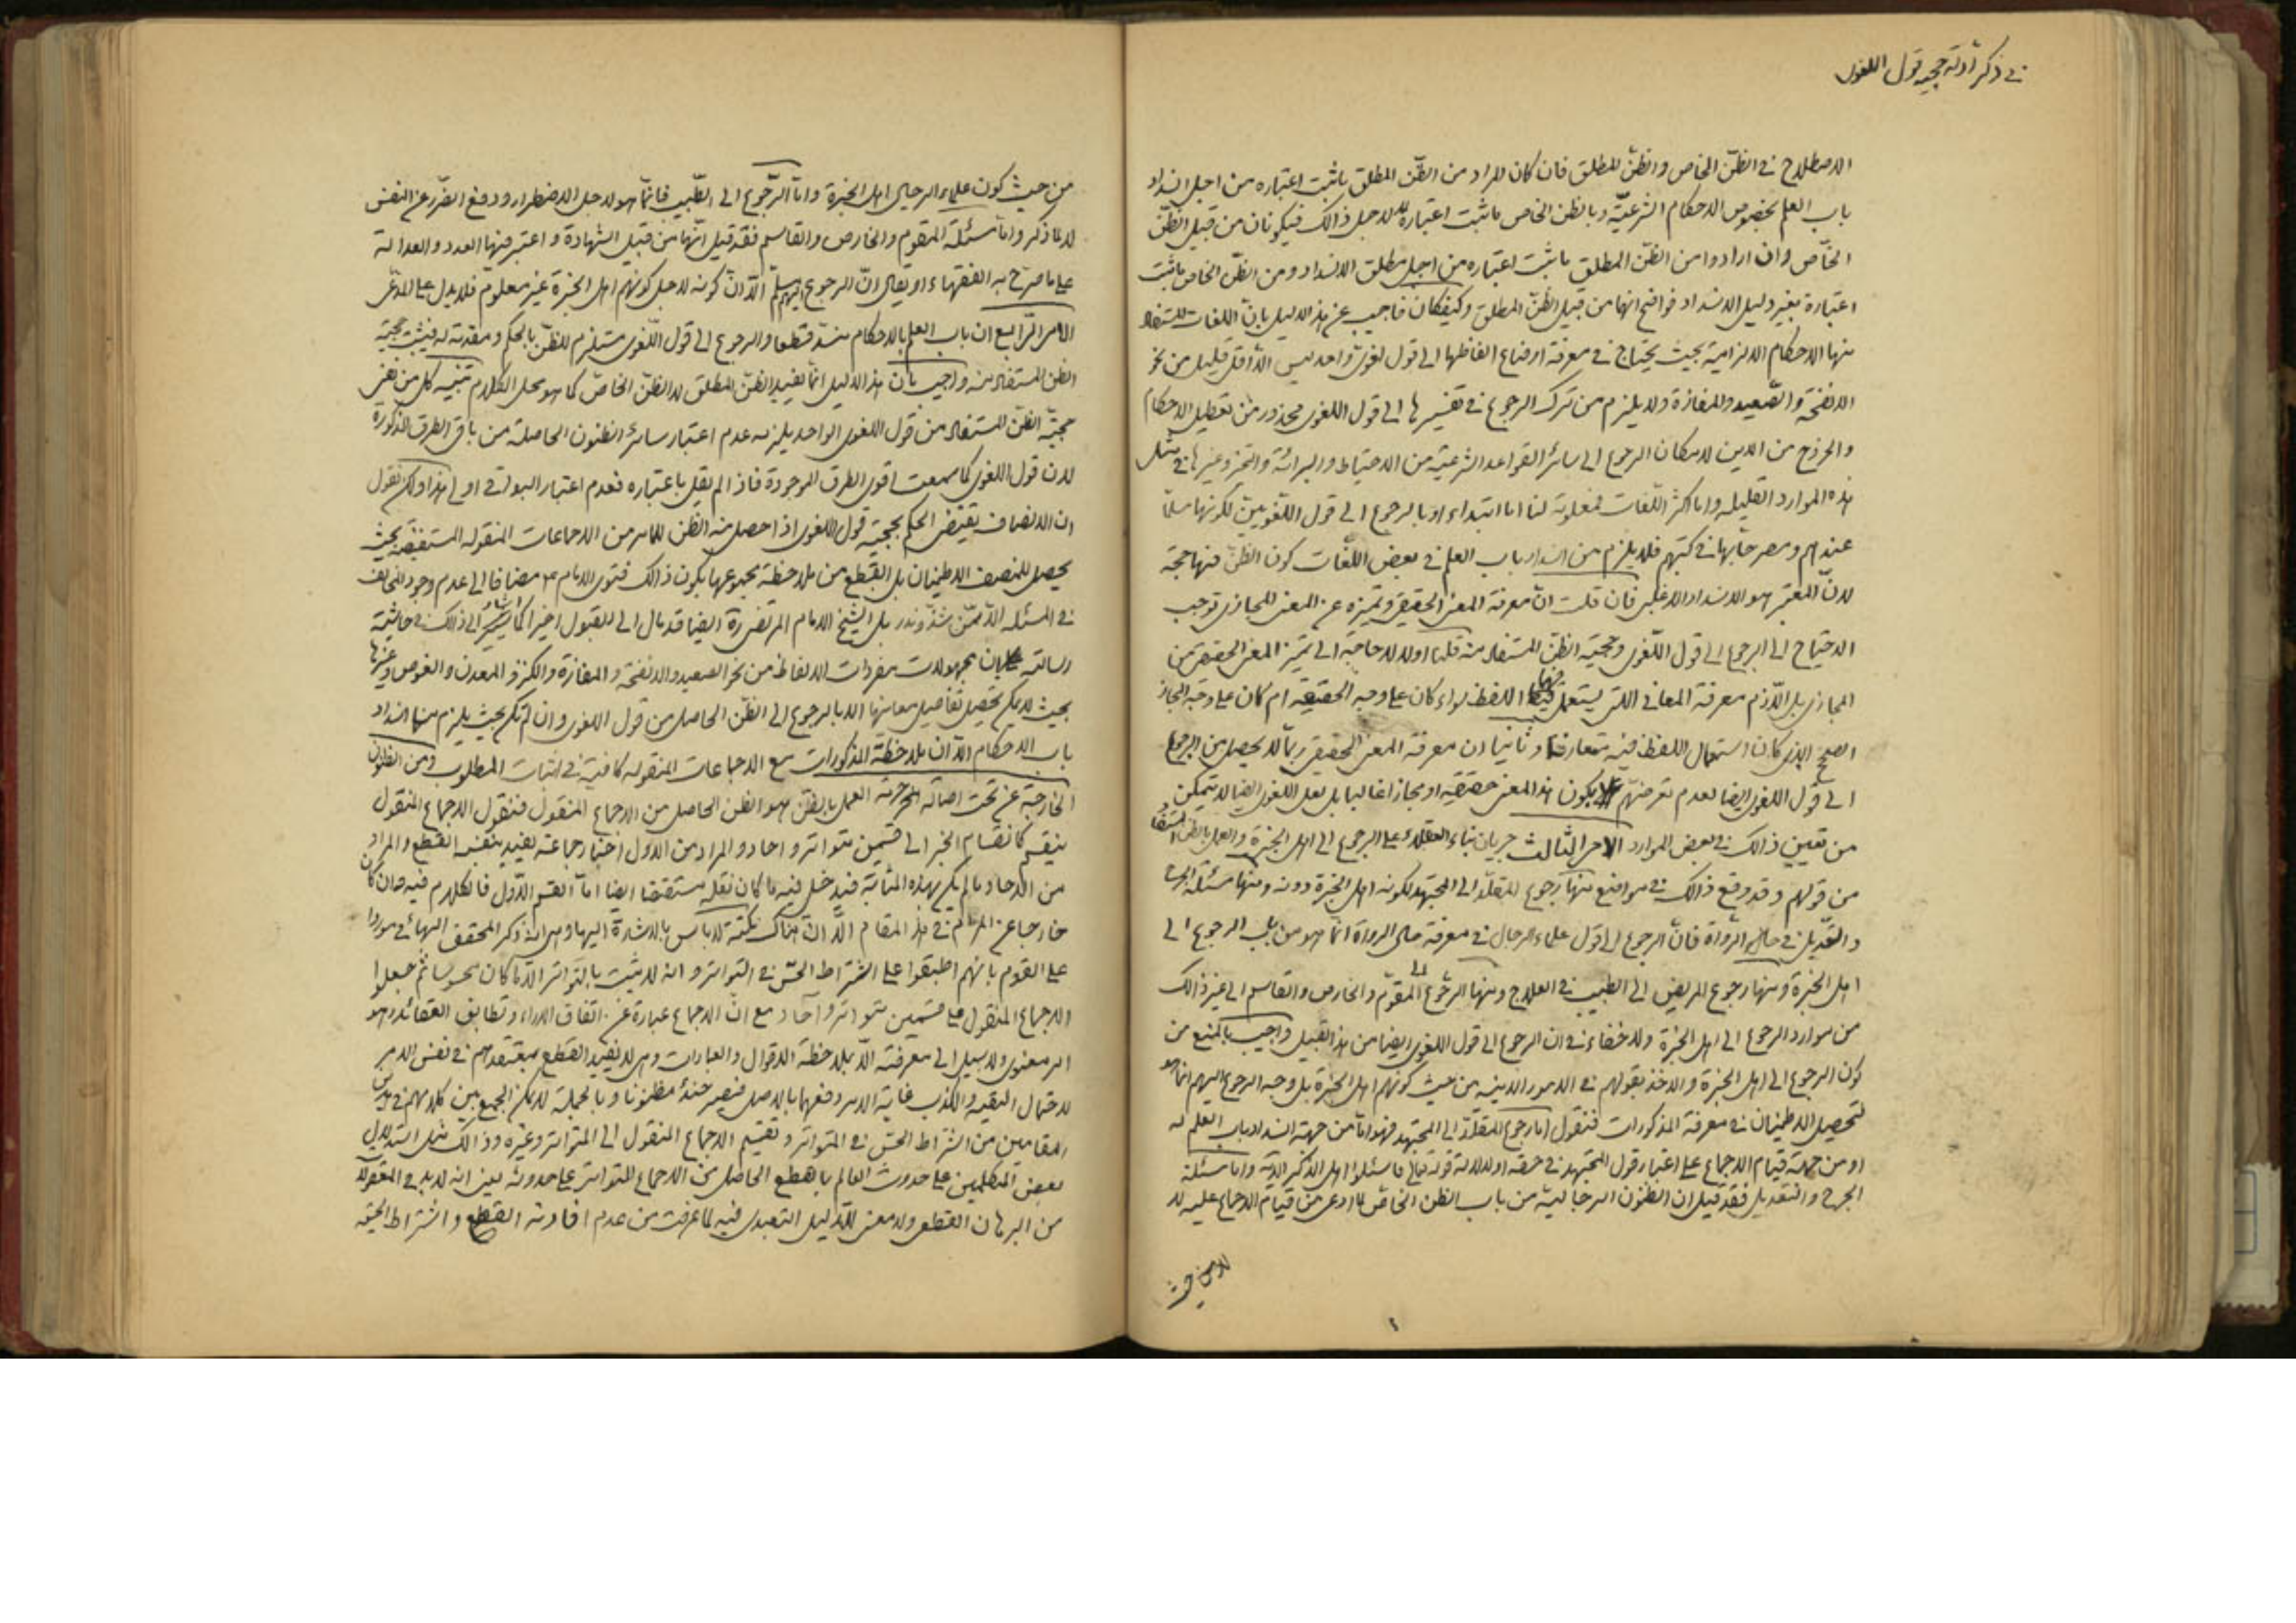 في ذكر ادلة حجية قول اللغوي
الاصطلاح في الظن الخاص والظن المطلق فان كان المراد من الظن المطلق ما ثبت اعتباره من اجل انسداد
باب العلم بخصوص الاحكام الشرعية وبالظن الخاص ما ثبت اعتباره لا لاجل ذالك فيكونان من قبيل الظن
الخاص وان ارادوا من الظن المطلق ما ثبت اعتباره من اجل مطلق الانسداد ومن الظن الخاص ما ثبت
اعتباره بغير دليل الانسداد فواضح انها من قبيل الظن المطلق وكيفكان فاجيب عن هذا الدليل بان اللغات المستفاد
منها الاحكام الالزامية بحيث يحتاج في معرفة اوضاع الفاظها الى قول لغوي واحد ليس الا اقل قليل من نحو
الانفحة والصعيد والمفازة ولا يلزم من ترك الرجوع في تفسيرها الى قول اللغوي محذور من تعطيل الاحكام
والخروج من الدين لامكان الرجوع الى سائر القواعد الشرعية من الاحتياط والبرائة والتخير وغيرها في مثل
هذه الموارد القليلة واما اكثر اللغات فمعلومة لنا اما ابتداء او بالرجوع الى قول اللغويين لكونها مسلما
عندهم ومصرحا بها في كتبهم فلا يلزم من انسداد باب العلم في بعض اللغات كون الظن فيها حجة
لان المعتبر هو الانسداد الاغلبي فان قلت ان معرفة المعنى الحقيقي وتميزه عن المعنى المجازي توجب
الاحتياج الى الرجوع الى قول اللغوي وحجية الظن المستفاد منه قلنا اولا لا حاجة الى تميز المعنى الحقيقي من
المجازي بل اللازم معرفة المعاني اللتي يستعمل فيها اللفظ سواء كان على وجه الحقيقة ام كان على وجه المجاز
الصحيح الذي كان استعمال اللفظ فيه متعارفا وثانيا ان معرفة المعنى الحقيقي ربما لا يحصل من الرجوع
الى قول اللغوي ايضا لعدم تعرضهم يكون هذا المعنى حقيقة او مجازا غالبا بل لعل اللغوي ايضا لا يتمكن
من تعيين ذالك في بعض الموارد الامر الثالث جريان بناء العقلاء على الرجوع الى اهل الخبرة والعمل بالظن المستفاد
من قولهم وقد وقع ذالك في مواضع منها رجوع المقلد الى المجتهد لكونه اهل الخبرة دونه ومنها مسئلة الجرح
والتعديل في حال الرواة فان الرجوع الى قول علماء الرجال في معرفة حال الرواة انما هو من باب الرجوع الى
اهل الخبرة ومنها رجوع المريض الى الطبيب في العلاج ومنها الرجوع الى المقوم والخارص والقاسم الى غير ذالك
من موارد الرجوع الى اهل الخبرة ولا خفاء في ان الرجوع الى قول اللغوي ايضا من هذا القبيل واجيب بالمنع من
كون الرجوع الى اهل الخبرة والاخذ بقولهم في الامور الدينية من حيث كونهم اهل الخبرة بل وجه الرجوع اليهم انما هو
لتحصيل الاطمينان في معرفة المذكورات فنقول اما رجوع المقلد الى المجتهد فهو اما من جهة انسداد باب العلم له
او من جهة قيام الاجماع على اعتبار قول المجتهد في حقه او لدلالة قوله تعالى فاسئلوا اهل الذكر الآية واما مسئلة
الجرح والتعديل فقد قيل ان الظنون الرجالية من باب الظن الخاص لما ادعى من قيام الاجماع عليه لا
لا من حيث
من حيث كون علماء الرجال اهل الخبرة واما الرجوع الى الطبيب فانما هو لاجل الاضطرار ودفع الضرر عن النفس
لا لما ذكر واما مسئلة المقوم والخارص والقاسم فقد قيل انها من قبيل الشهادة واعتبر فيها العدد والعدالة
على ما صرح به الفقهاء او يقال ان الرجوع اليهم مسلم الا ان كونه لاجل كونهم اهل الخبرة غير معلوم فلا يدل على المدعى
الامر الرابع ان باب العلم بالاحكام منسد قطعا والرجوع الى قول اللغوي مستلزم للظن بالحكم ومقدمة له فيثبت حجية
الظن المستفاد منه واجيب بان هذا الدليل انما يفيد الظن المطلق لا الظن الخاص كما هو محل الكلام تنبيه كل من نفى
حجية الظن المستفاد من قول اللغوي الواحد يلزمه عدم اعتبار سائر الظنون الحاصلة من باقي الطرق المذكورة
لان قول اللغوي كما سمعت اقوى الطرق الموجودة فاذا لم نقل باعتباره فعدم اعتبار البواقي اولى هذا ولكن نقول
ان الانصاف يقتضي الحكم بحجية قول اللغوي اذا حصل منه الظن للامر من الاجماعات المنقولة المستفيضة بحيث
يحصل للمنصف الاطمينان بل القطع من ملاحظة مجموعها بكون ذالك فتوى الامام ع مضافا الى عدم وجود المخالف
في المسئلة الا ممن شذ وندر بل الشيخ الامام المرتضى ره ايضا قد مال الى القبول اخيرا كما اشار الى ذالك في حاشية
رسالته بان مجهولات مفردات الالفاظ من نحو الصعيد والانفحة والمفازة والكنز والمعدن والغوص وغيرها
بحيث لا يمكن تحصيل تفاصيل معانيها الا بالرجوع الى الظن الحاصل من قول اللغوي وان لم تكن بحيث يلزم منها انسداد
باب الاحكام الا ان ملاحظة المذكورات مع الاجماعات المنقولة كافية في اثبات المطلوب ومن الظنون
الخارجة عن تحت اصالة حرمة العمل بالظن هو الظن الحاصل من الاجماع المنقول فنقول الاجماع المنقول
ينقسم كانقسام الخبر الى قسمين متواتر واحاد والمراد من الاول اخبار جماعة يفيد بنفسه القطع والمراد
من الاحاد ما لم يكن بهذه المثابة فيدخل فيه ما كان نقله مستفيضا ايضا اما القسم الاول فالكلام فيه وان كان
خارجا عن المرام في هذا المقام الا ان هناك نكتة لا باس بالاشارة اليها وهي انه ذكر المحقق البهائي موردا
على القوم بانهم اطبقوا على اشتراط الحس في التواتر وانه لا يثبت بالتواتر الا ما كان محسوسا ثم جعلوا
الاجماع المنقول على قسمين متواتر وآحاد مع ان الاجماع عبارة عن اتفاق الاراء وتطابق العقائد وهو
امر معنوي ولا سبيل الى معرفته الا بملاحظة الاقوال والعبارات وهي لا يفيد القطع بمعتقدهم في نفس الامر
لاحتمال التقية والكذب غاية الامر دفعها بالاصل فيصير حينئذ مظنونا وبالجملة لا يمكن الجمع بين كلامهم في
المقامين من اشتراط الحس في المتواتر وتقسيم الاجماع المنقول الى المتواتر وغيره وذالك مثل استدلال
بعض المتكلمين على حدوث العالم بالقطع الحاصل من الاجماع المتواتر على حدوثه بين انه لا بد في المعقولات
من البرهان القطعي ولا معنى للدليل التعبدي فيه لما عرفت من عدم افادته القطع واشتراط الحس